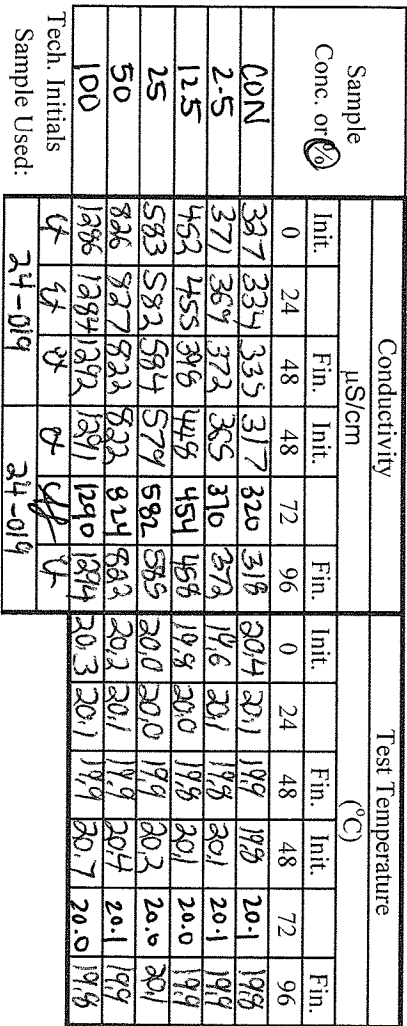 Sample Conc. or % Conductivity µS/cm Test Temperature (°C)
Init. Fin. Init. Fin. Init. Fin. Init. Fin.
0 24 48 48 72 96 0 24 48 48 72 96
CON 327 334 335 317 320 318 20.4 20.1 19.9 19.8 20.1 19.8
2.5 371 369 372 365 370 372 19.6 20.1 19.8 20.1 20.1 19.9
12.5 452 455 398 448 454 458 19.8 20.0 19.8 20.1 20.0 19.9
25 583 582 584 579 582 585 20.0 20.0 19.9 20.2 20.0 20.1
50 826 827 822 822 824 822 20.2 20.1 19.9 20.4 20.1 19.9
100 1286 1284 1292 1291 1290 1294 20.3 20.1 19.9 20.7 20.0 19.8
Tech. Initials
Sample Used: 24-019 24-019